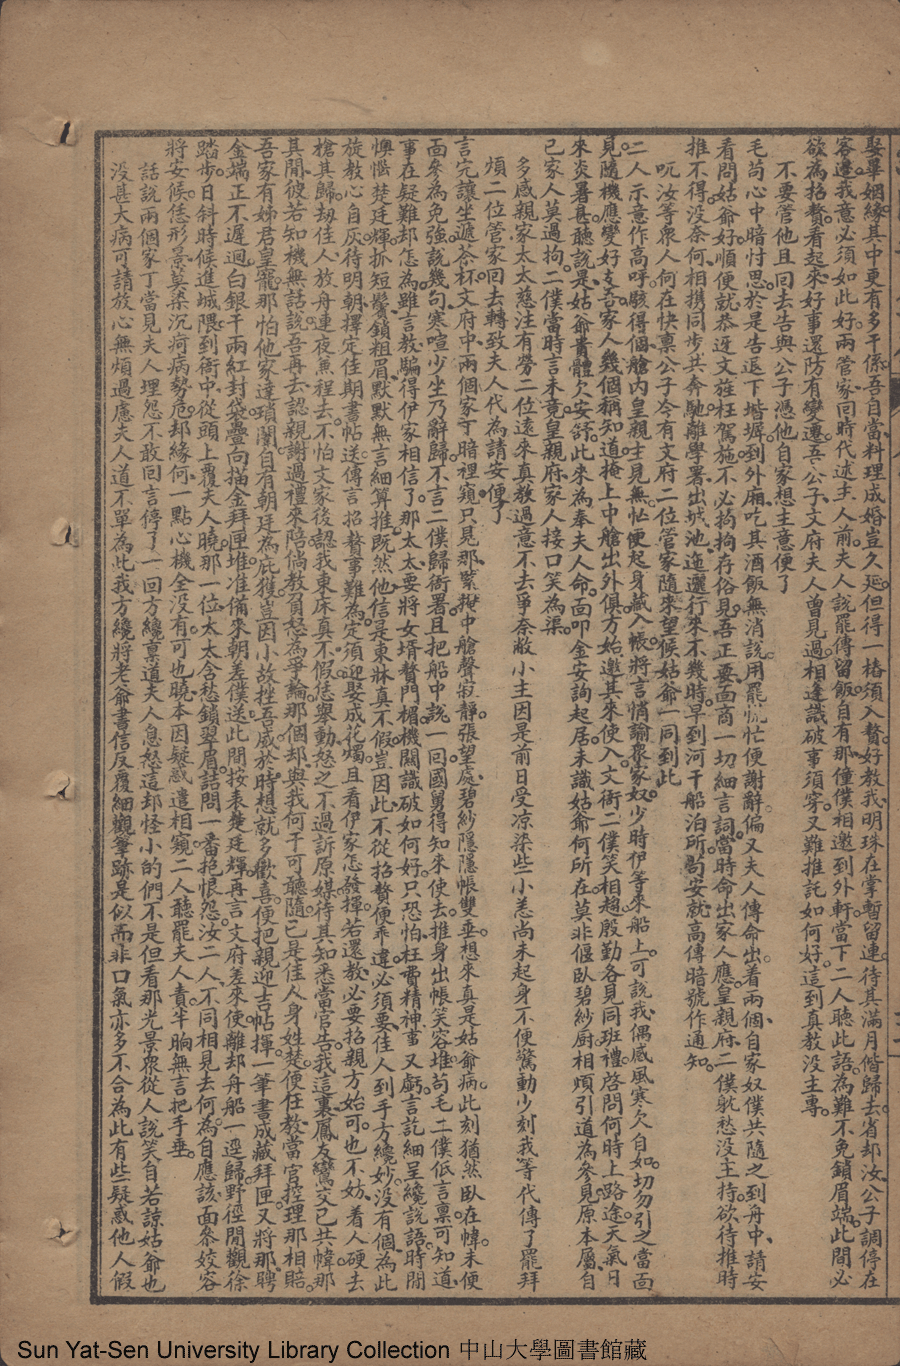 娶畢姻緣其中更有多干係吾自當料理成婚豈久延但得一樁須入贅好教我明珠在掌暫留連待其滿月偕歸去省却汝公子調停在
客邊我意必須如此好兩管家回時代述主人前夫人說罷傳留飯自有那僮僕相邀到外軒當下二人聽此語為難不免鎖眉端此間必
欲為招贅看起來好事還防有變遷吾公子文府夫人曾見過相逢識破事須穿又難推託如何好這到真教沒主專
不要管他且回去告與公子憑他自家想主意便了
毛苟心中暗忖思於是告退下堦墀到外廂吃其酒飯無消說用罷忙忙便謝辭偏又夫人傳命出着兩個自家奴僕共隨之到舟中請安
看問姑爺好順便就恭迓文旌枉駕施不必拘拘存俗見吾正要面商一切細言詞當時命出家人應皇親府二僕就愁沒主持欲待推時
推不得沒奈何相携同步共奔馳離學署出城池迤邐行來不幾時早到河干船泊所苟安就高傳暗號作通知
吭汝等衆人何在快禀公子今有文府二位管家隨來望候姑爺一同到此
二人示意作高呼駭得個艙內皇親主見無忙便起身藏入帳將言悄諭衆家奴少時伊等來船上可說我偶感風寒欠自如切勿引之當面
見隨機應變好支吾家人幾個稱知道掩上中艙出外俱方始邀其來使入文衙二僕笑相趨殷勤各見同班禮啓問何時上路途天氣日
來炎暑甚聽說是姑爺貴體欠安舒此來為奉夫人命面叩金安詢起居未識姑爺何所在莫非偃臥碧紗厨相煩引道為參見原本屬自
己家人莫過拘二僕當時言未竟皇親府家人接口笑為渠
多感親家太太慈注有勞二位遠來真教過意不去爭奈敝小主因是前日受凉染些小恙尚未起身不便驚動少刻我等代傳了罷拜
煩二位管家回去轉致夫人代為請安便了
言完讓坐遞茶杯文府中兩個家丁暗裡窺只見那緊掩中艙聲寂靜張望處碧紗隱隱帳雙垂想來真是姑爺病此刻猶然臥在幃未便
面參為免強說幾句寒喧少坐乃辭歸不言二僕歸衙署且把船中說一回國舅得知來使去推身出帳笑容堆苟毛二僕低言禀可知道
事在疑難却怎為雖言教騙得伊家相信了那太太要將女壻贅門楣機關識破如何好只恐怕枉費精神當又虧言訖細呈纔說語時間
懊惱楚廷輝抓短鬓鎖粗眉默默無言細算推既然他信是東牀真不假豈因此不從招贅便乖違必須要佳人到手方纔妙沒有個為此
旋教心自灰待明朝擇定佳期書帖送傳言招贅事難為定須迎娶成花燭且看伊家怎發揮若還教必要招親方始可也不妨着人硬去
槍其歸刼佳人放舟連夜魚程去不怕文家後認我東床真不假恁舉動怒之不過訴原媒待其知悉當官告我這裏鳳友鸞交已共幃那
其間彼若知機無話說吾再去認親謝過禮來陪倘教負怒為爭論那個却與我何干可聽隨已是佳人身姓楚便任教當官控理那相賠
吾家有姊君皇寵那怕他家達瑣闈自有朝廷為庇獲豈因小故挫吾威於時想就多歡喜便把親迎吉帖揮一筆書成藏拜匣又將那聘
金端正不遲迴白銀千兩紅封袋疊向描金拜匣堆准備來朝差僕送此間按表楚廷輝再言文府差來使離却舟船一逕歸野徑閒觀徐
踏步日斜時候進城隈到衙中從頭上覆夫人曉那一位太太含愁鎖翠眉詰問一番抱恨怨汝二人不同相見去何為自應該面參姣容
將安候恁形景莫染沉疴病勢危却緣何一點心機全沒有可也曉本因疑惑遣相窺二人聽罷夫人責半晌無言把手垂
話說兩個家丁當見夫人埋怨不敢回言停了一回方纔禀道夫人息怒這却怪小的們不是但看那光景衆從人說笑自若諒姑爺也
沒甚大病可請放心無煩過慮夫人道不單為此我方纔將老爺書信反覆細觀筆跡是似而非口氣亦多不合為此有些疑惑他人假
Sun Yat-Sen University Library Collection 中山大學圖書館藏